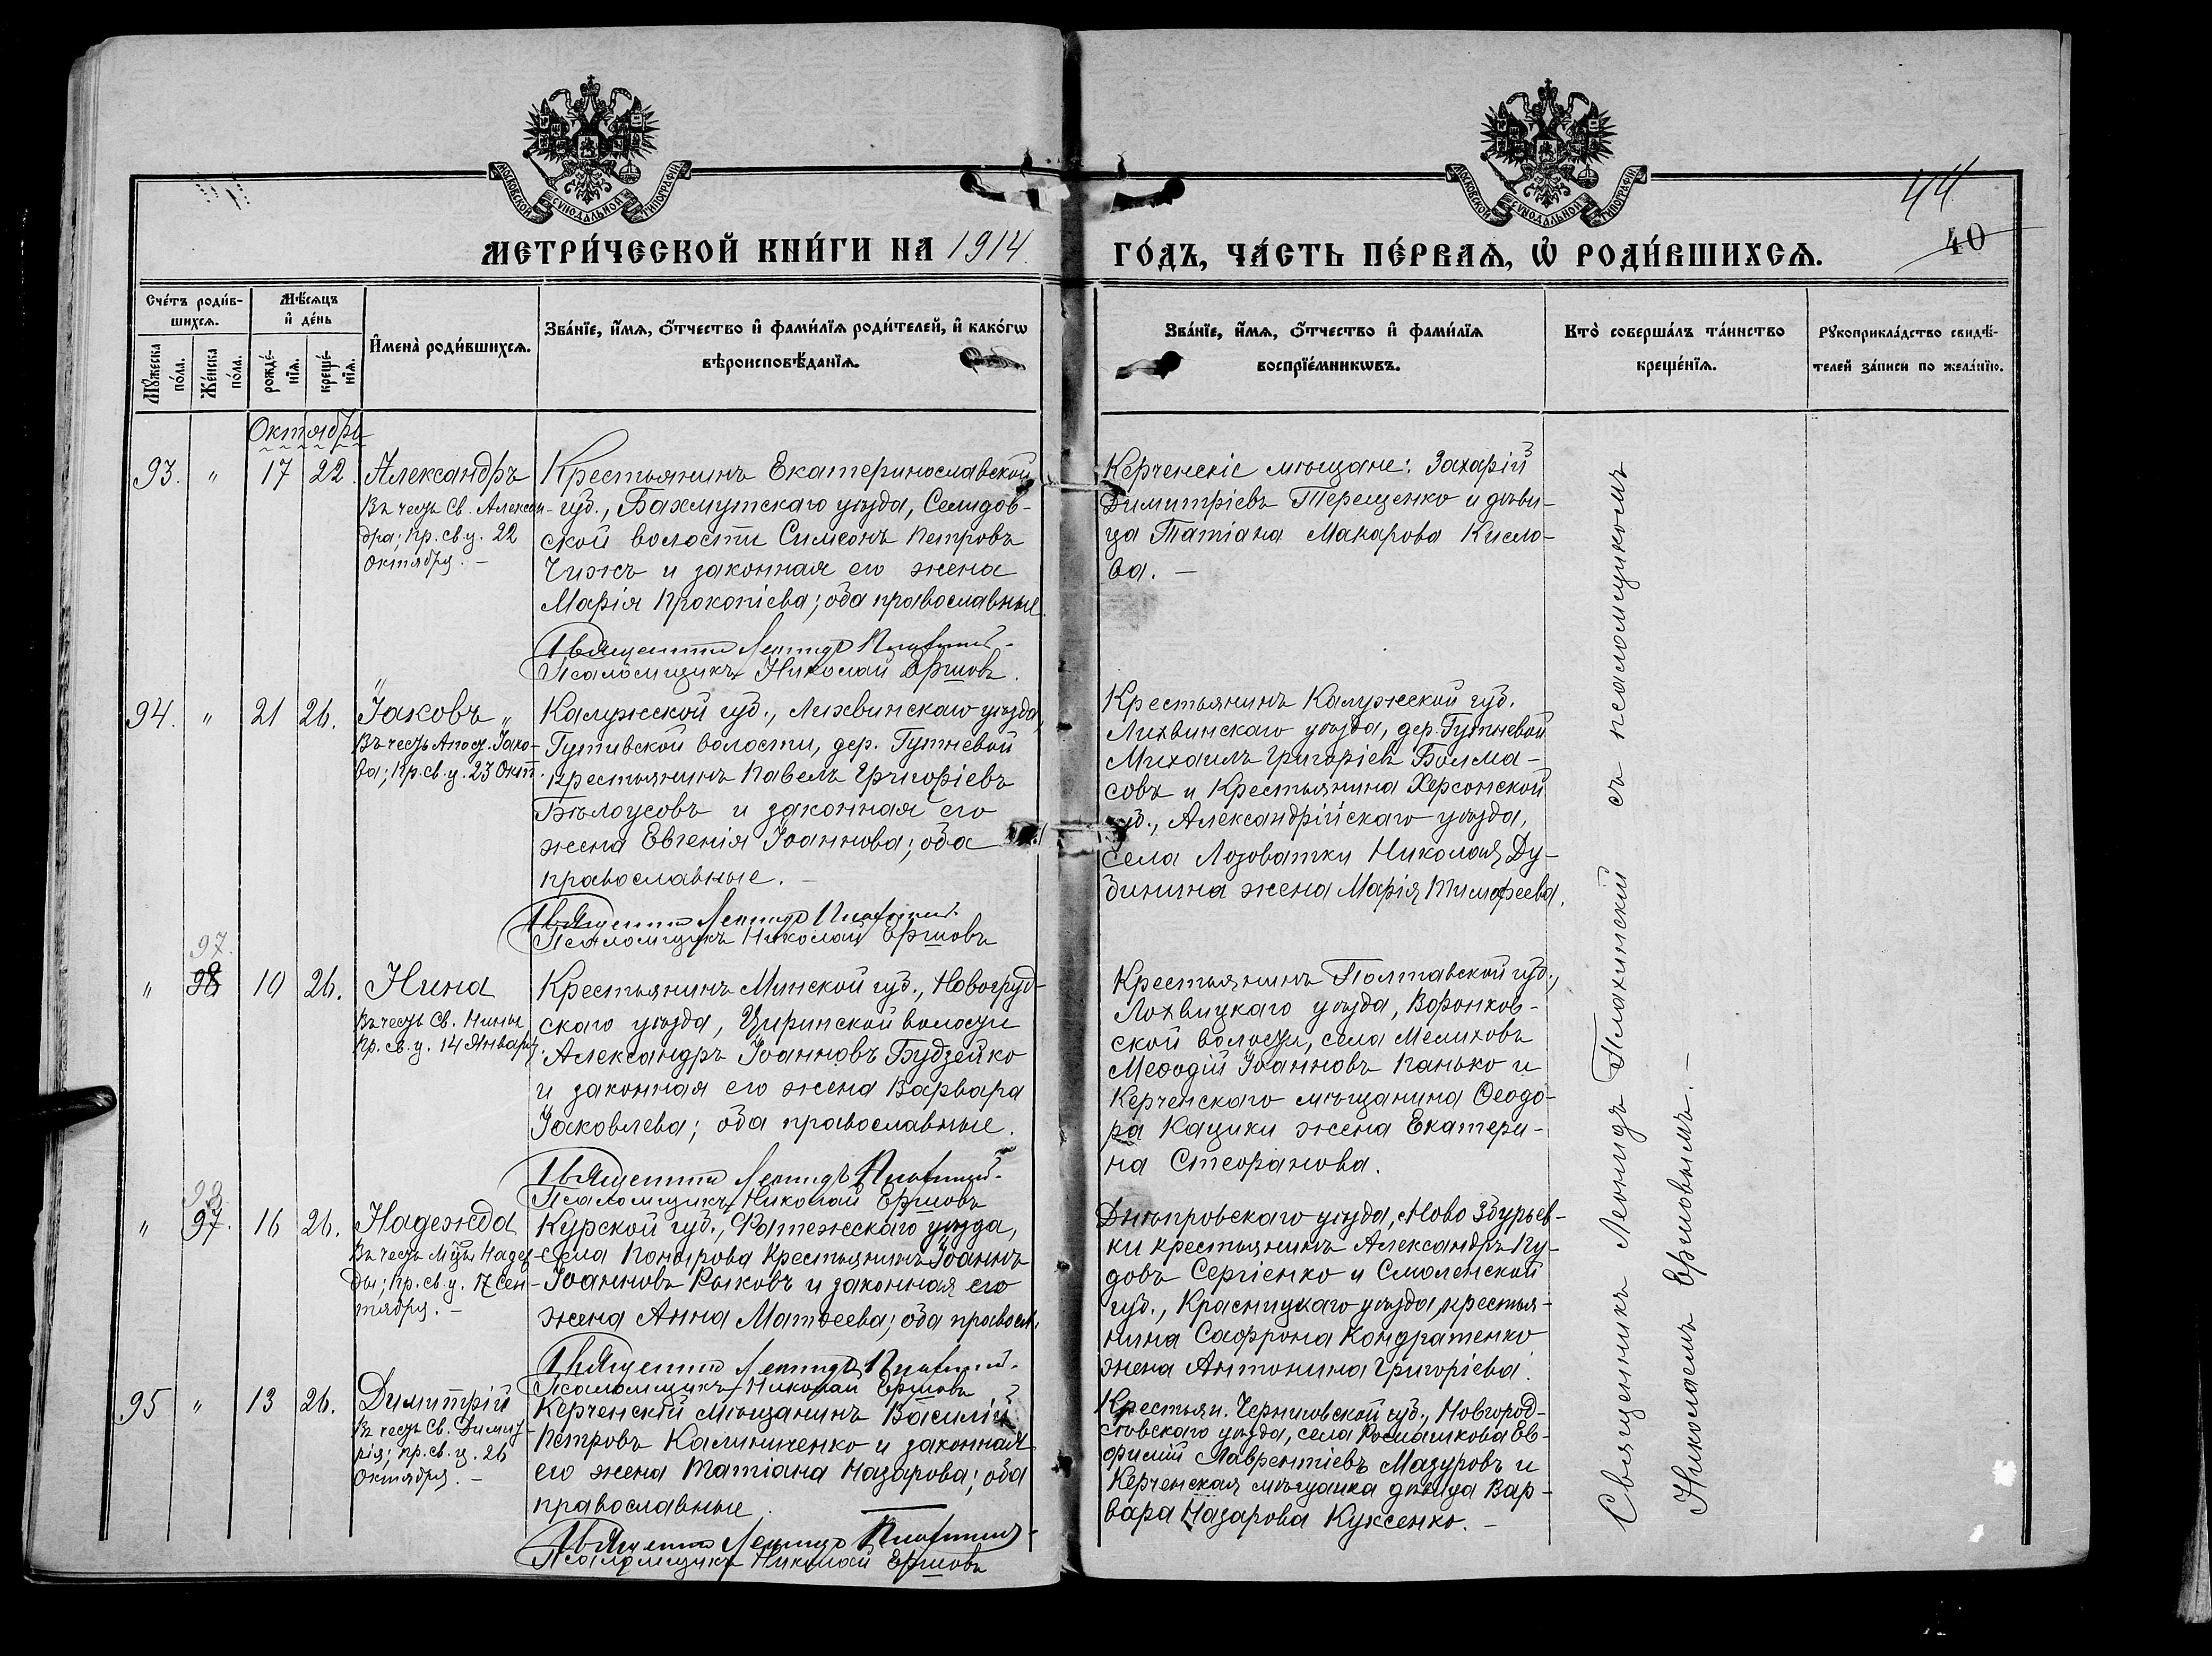 МОСКОВСКОЙ СѴНОДАЛЬНОЙ ТИПОГРАФІИ
МОСКОВСКОЙ СѴНОДАЛЬНОЙ ТИПОГРАФІИ
44
40
МЕТРИ́ЧЕСКОЙ КНИ́ГИ НА 1914. ГО́ДЪ, ЧА́СТЬ ПЕ́РВАѦ, Ѡ҆ РОДИ́ВШИХСѦ.
Сче́тъ роди́в-
шихсѧ.
Мꙋ́жеска по́ла.
Же́нска по́ла.
Мѣ́сѧцъ
и҆ де́нь
рожде́-
нїѧ.
креще́-
нїѧ.
И҆мена̀ роди́вшихсѧ.
Зва́нїе, и҆́мѧ, ѻ҆́тчество и҆ фами́лїѧ роди́телей, и҆ како́гѡ
вѣроисповѣ́данїѧ.
Зва́нїе, и҆́мѧ, ѻ҆́тчество и҆ фами́лїѧ
воспрїе́мникѡвъ.
Кто̀ соверша́лъ та́инство
креще́нїѧ.
Рꙋкоприкла́дство свидѣ́-
телей за́писи по жела́нїю.
Октябрь
93. " 17 22. Александръ
Въ честь Св. Алексан-
дра; пр. св. ц. 22
Октября. —
Крестьянинъ Екатеринославской
губ., Бахмутскаго уѣзда, Селидов-
ской волости Симеонъ Петровъ
Чижъ и законная его жена
Марія Прокопіева; оба православные.
Священникъ Леонидъ Плахинский
Псаломщикъ Николай Ершовъ.
Керченскіе мѣщане: Захарій
Димитріевъ Терещенко и дѣви-
ца Татіана Макарова Кисло-
ва. —
94. " 21 26. Іаковъ "
Въ честь Апост. Іако-
ва; пр. св. ц. 23 Окт.
Калужской губ., Лихвинскаго уѣзда,
Гутивской волости, дер. Гутневой
крестьянинъ Павелъ Григоріевъ
Бѣлоусовъ и законная его
жена Евгенія Іоаннова; оба
православные. —
Священникъ Леонидъ Плахинский
Псаломщикъ Николай Ершовъ
Крестьянинъ Калужской губ.
Лихвинскаго уѣзда, дер. Гутневой
Михаилъ Григоріевъ Болма-
совъ и Крестьянина Херсонской
губ., Александрійскаго уѣзда,
села Лозоватки Николая Ду-
бинина жена Марія Тимофеева.
97.
" 98 19 26. Нина
Въ честь Св. Нины
пр. св. ц. 14 Января.
Крестьянинъ Минской губ., Новогруд-
скаго уѣзда, Циринской волости
Александръ Іоанновъ Будзейко
и законная его жена Варвара
Іаковлева; оба православные.
Священникъ Леонидъ Плахинский
Псаломщикъ Николай Ершовъ
Крестьянинъ Полтавской губ.,
Лохвицкаго уѣзда, Воронков-
ской волости, села Мелиховъ
Меѳодій Іоанновъ Панько и
Керченскаго мѣщанина Ѳеодо-
ра Кацики жена Екатери-
на Стефанова.
98.
" 97. 16 26. Надежда
Въ честь Мцы Надеж-
ды; пр. св. ц. 17 Сен-
тября. —
Курской губ., Фатежскаго уѣзда,
села Понырова крестьянинъ Іоаннъ
Іоанновъ Рыковъ и законная его
жена Анна Матѳеева; оба правосл.
Священникъ Леонидъ Плахинский
Псаломщикъ Николай Ершовъ
Днѣпровскаго уѣзда, Ново Збурьев-
ки крестьянинъ Александръ Пу-
довъ Сергіенко и Смоленской
губ., Красницкаго уѣзда, крестья-
нина Сафрона Кондратенко
жена Антонина Григоріева.
95 " 13 26. Димитрій
Въ честь Св. Димит-
рія; пр. св. ц. 26
Октября. —
Керченскій мѣщанинъ Василій
Петровъ Калиниченко и законная
его жена Татіана Назарова; оба
православные.
Священникъ Леонидъ Плахинский
Псаломщикъ Николай Ершовъ
Крестьян. Черниговской губ., Новгород-
сѣвскаго уѣзда, села Ромашкова Ев-
фимій Лаврентіевъ Мазуровъ и
Керченская мѣщанка дѣвица Вар-
вара Назарова Куксенко. —
Священникъ Леонидъ Плахинский съ псаломщикомъ
Николаемъ Ершовымъ. —